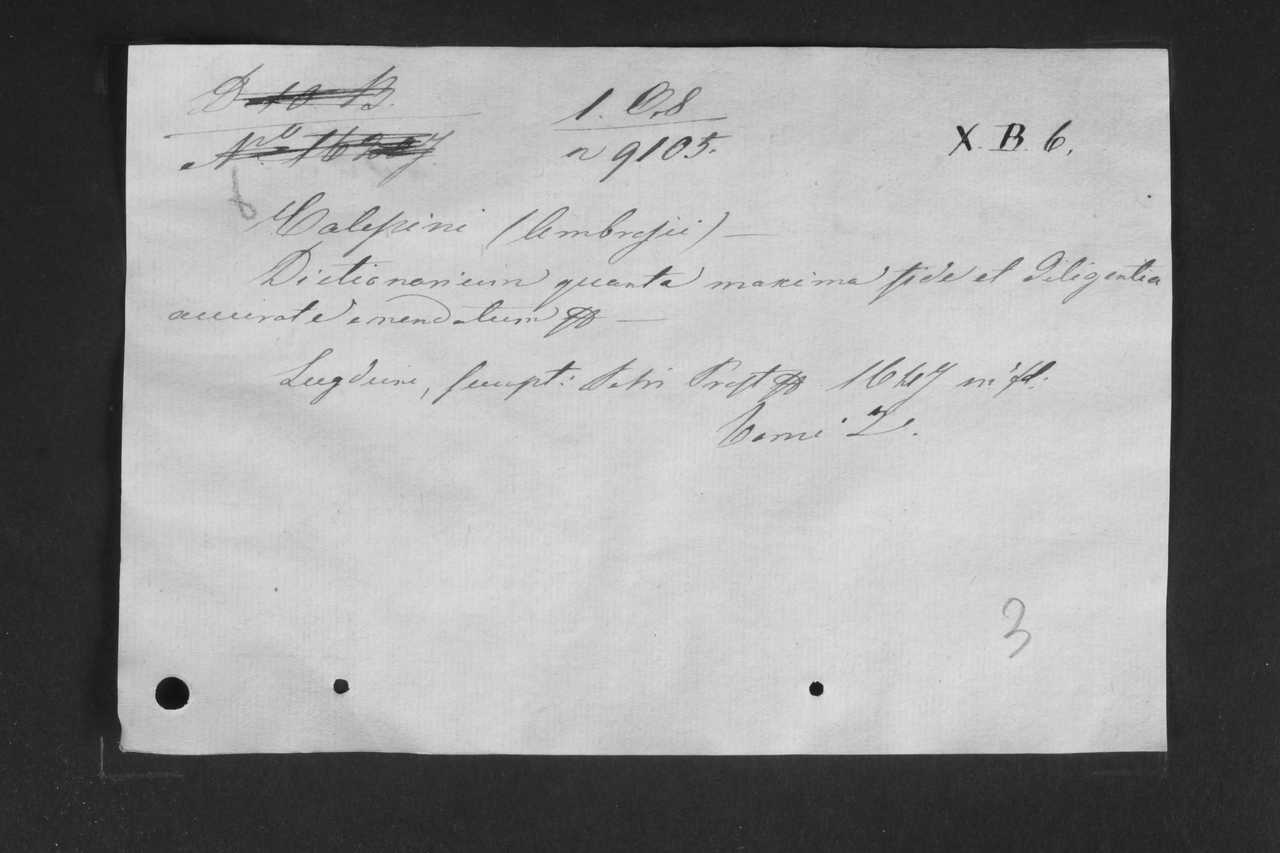 D 10 B.
1. O.8
X. B. 6.
n 9105.
Calepini (Ambrosii) —
Dictionarium quanta maxima fide et diligentia
accurate emendatum &c —
Lugduni, sumpt: Petri Prost &c 1647 in fol:
Tomi 2.
3